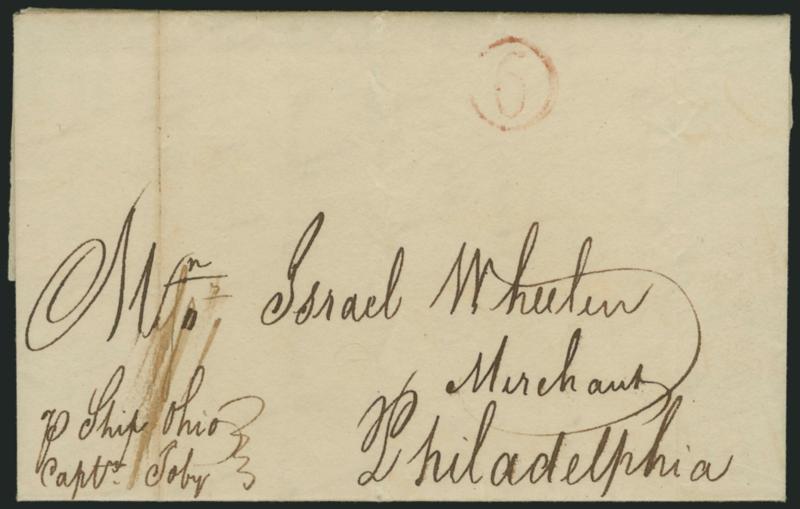 6
Mr Israel Wheelen
Merchant
Philadelphia
p Ship Ohio
Captn Toby